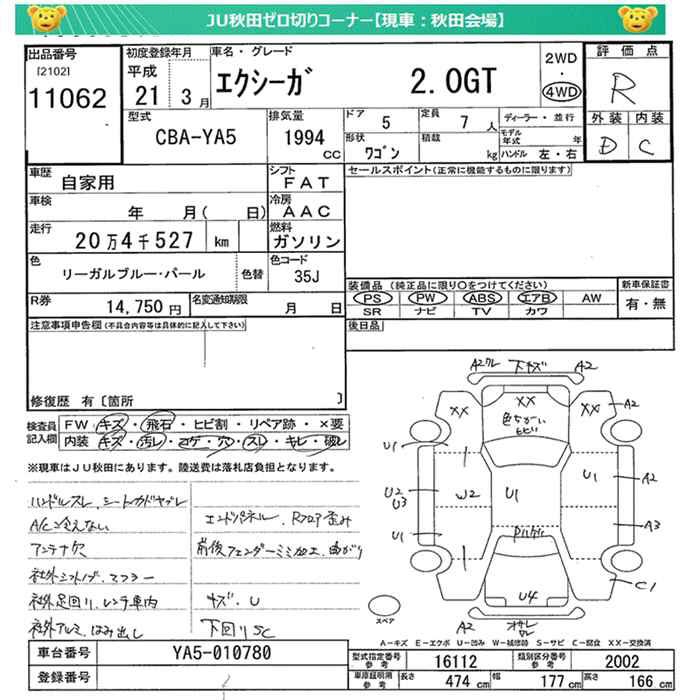 JU秋田ゼロ切りコーナー【現車：秋田会場】
出品番号
[2102]
11062
初度登録年月
平成
21 3月
車名・グレード
エクシーガ 2.0GT
2WD
・
4WD
評価点
R
外装 内装
D C
型式
CBA-YA5
排気量
1994
CC
ドア
5
定員
7人
形状
ワゴン
積載
kg
ディーラー・並行
モデル年式 年
ハンドル 左・右
車歴
自家用
シフト
FAT
車検
年 月( 日)
冷房
AAC
走行
20万4千527 km
燃料
ガソリン
色
リーガルブルー・パール
色替
色コード
35J
R券
14,750円
名変通知期限
月 日
セールスポイント(正常に機能するものに限ります)
装備品(純正品に限り○をつけてください)
PS PW ABS エアB AW
SR ナビ TV カワ
新車保証書
有・無
後日品
注意事項申告欄(不具合内容等は具体的に記入して下さい)
修復歴 有〔箇所 〕
検査員記入欄
FW キズ・飛石・ヒビ割・リペア跡・×要
内装 キズ・汚レ・コゲ・穴・スレ・キレ・破レ
※現車はJU秋田にあります。陸送費は落札店負担となります。
ハンドルスレ、シートカドヤブレ
A/C冷えない
アンテナ欠
社外シフトノブ、マフラー
社外足回り、レンチ車内
社外アルミ、はみ出し
エンドパネル、Rフロア歪み
前後フェンダーミミ加工、曲がり
キズ、U
下回りSC
A2ワレ 下キズ A2
XX XX XX
色ちがい
ヒビ
A2
U1
U2
U3
U1
W2
U1
U1
A2
A3
C1
U4
A2
スペア
A－キズ E－エクボ U－凹み W－補修跡 S－サビ C－腐食 XX－交換済
車台番号
YA5-010780
登録番号
型式指定番号 参考
16112
類別区分番号 参考
2002
車庫証明用 参考
長さ 474 cm
幅 177 cm
高さ 166 cm